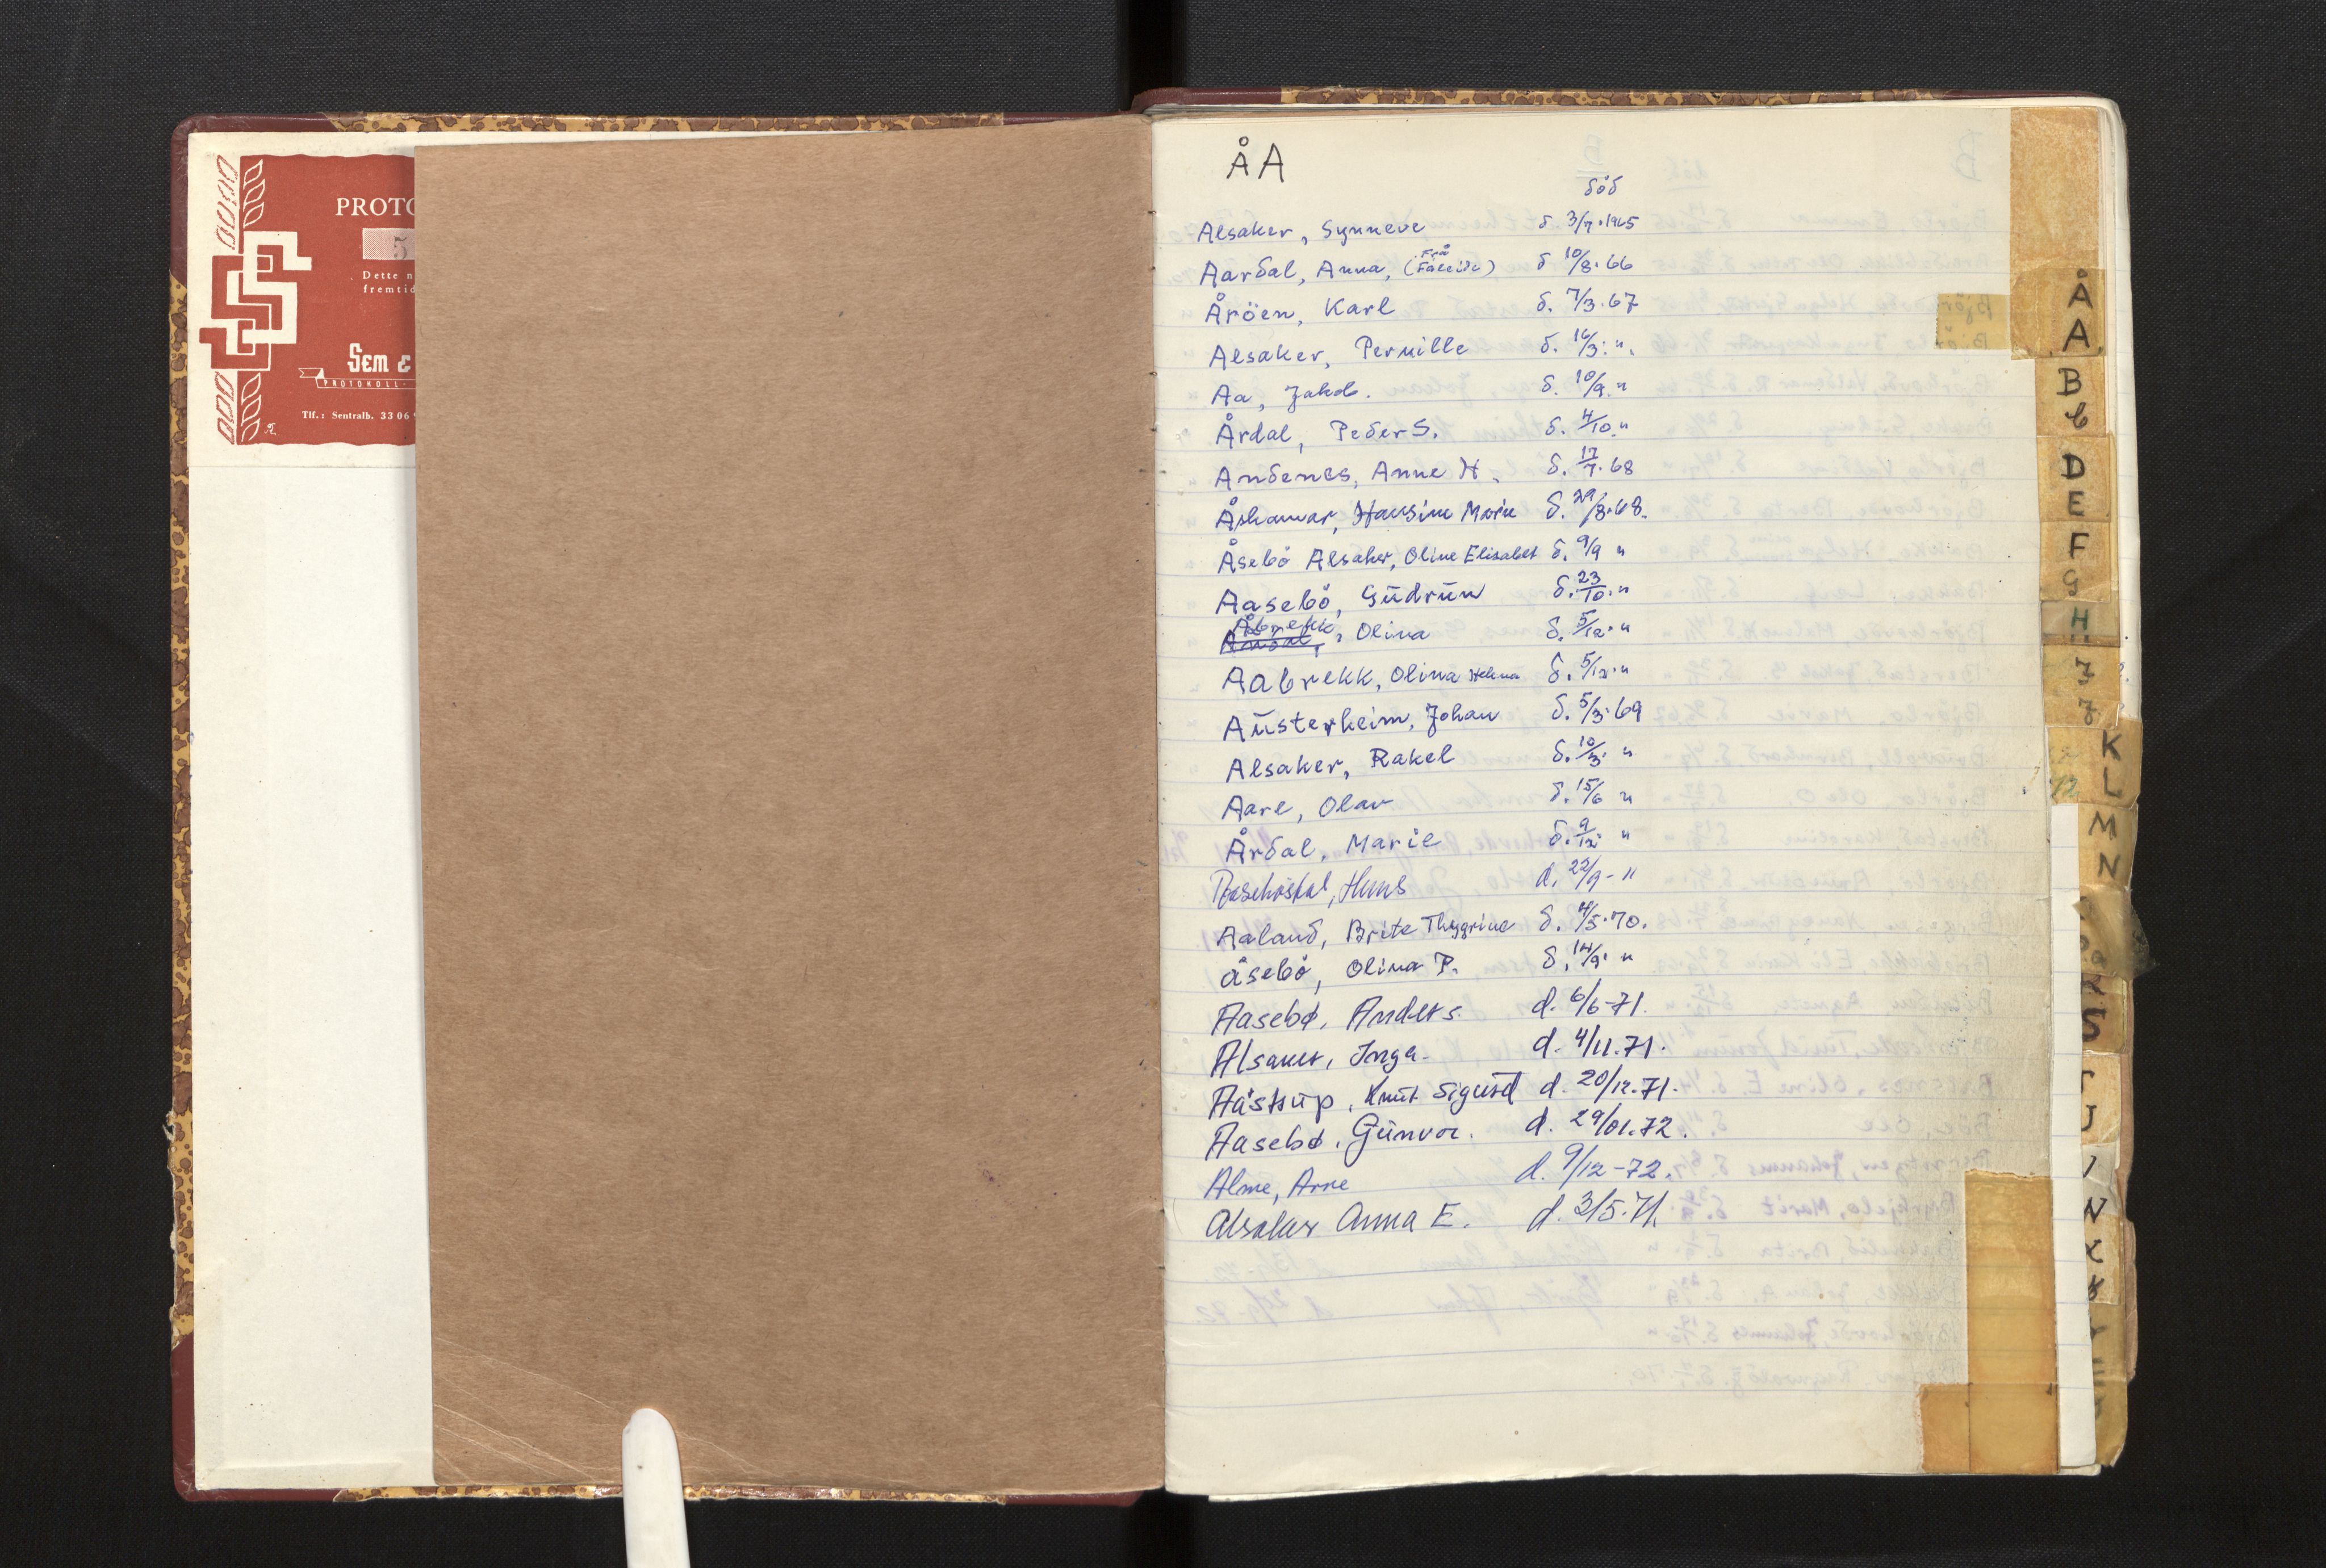 PROTO
5
Dette n
fremtid
Sem &
PROTOKOLL-
Tlf.: Sentralb. 33 06
Å A
död
Alsaker, Synneve d 3/7.1965
Aardal, Anna, (Frå Faleide) d 10/8.66
Åröen, Karl d. 7/3.67
Alsaker, Pernille d. 16/3. "
Aa, Jakob. d. 10/9. "
Årdal, Peder S. d. 4/10. "
Andenes, Anne H. d. 17/7.68
Åshamar, Hansine Marie d. 29/8.68.
Åsebö Alsaker, Oline Elisabet d. 9/9 "
Aasebö, Gudrun d. 23/10. "
Åbrekk, Olina d. 5/12. "
Aabrekk, Olina Helena d. 5/12. "
Austerheim, Johan d. 5/3.69
Alsaker, Rakel d. 10/3. "
Aare, Olav d. 15/6 "
Årdal, Marie d. 9/12. "
Hans d. 22/9 - "
Aaland, Brite Thygrine d. 4/5.70.
Åsebö, Olina P. d. 14/9. "
Aasebø, Anders. d. 6/6-71.
Alsaker, Inga. d. 4/11.71.
Aastrup, Knut Sigurd d. 20/12.71.
Aasebø, Gunvor. d. 29/01.72.
Alme, Arne d. 9/12-72.
Alsaker Anna E. d. 3/5.71.
Å
A
B
D
E
F
G
H
I
J
K
L
M
N
R
S